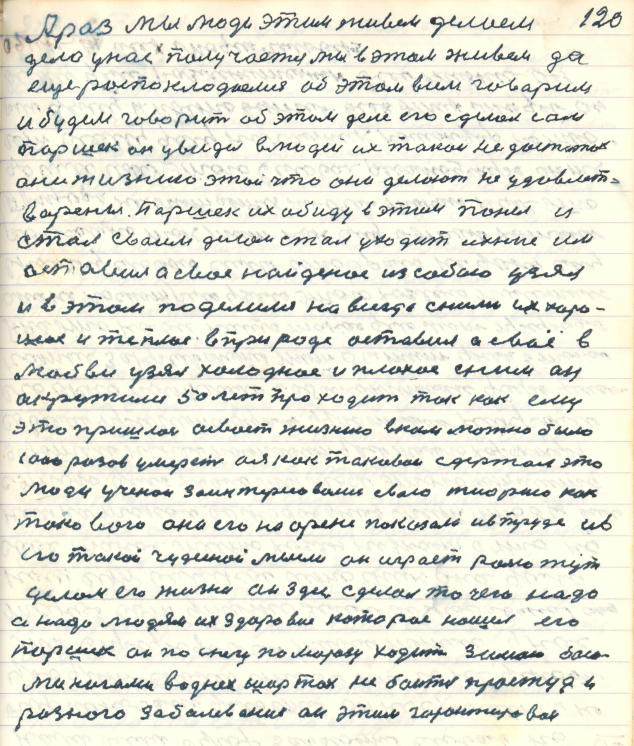 Араз мы люди этим живем делаем 120
дело унас получается мы в этом живем да
еще роспоклодаемся об этом вим говарим
и будим говорит об этом деле его сделал сам
паршек он увидел влюдей их такой недостаток
они жизнию этой что они делают не удовлет-
варены. Паршек их обиду в этим понял и
стал своим делом стал уходит ихние им
оставил а свое найденое из собою узял
и в этом поделился на всегда сними их хоро-
шое и теплое вприроде оставил а своё в
любви узял холодное и плохое сним он
окружился 50 лет проходит так как ему
это пришлос сваей жизнию вком можно было
1000 разов умерет а я как таковой сдержал это
люди ученои заинтересовали свою теорию как
такового они его на арене показали ивтруде ив
его такой чуденой мысли он играет роль тут
целом его жизни он здес сделал то чего надо
а надо людям их здоровие которое нашел его
паршек он по снегу по морозу ходит зимою босы-
ми ногами водних шортах не боится простуд и
разного заболевания он этим гарантировал